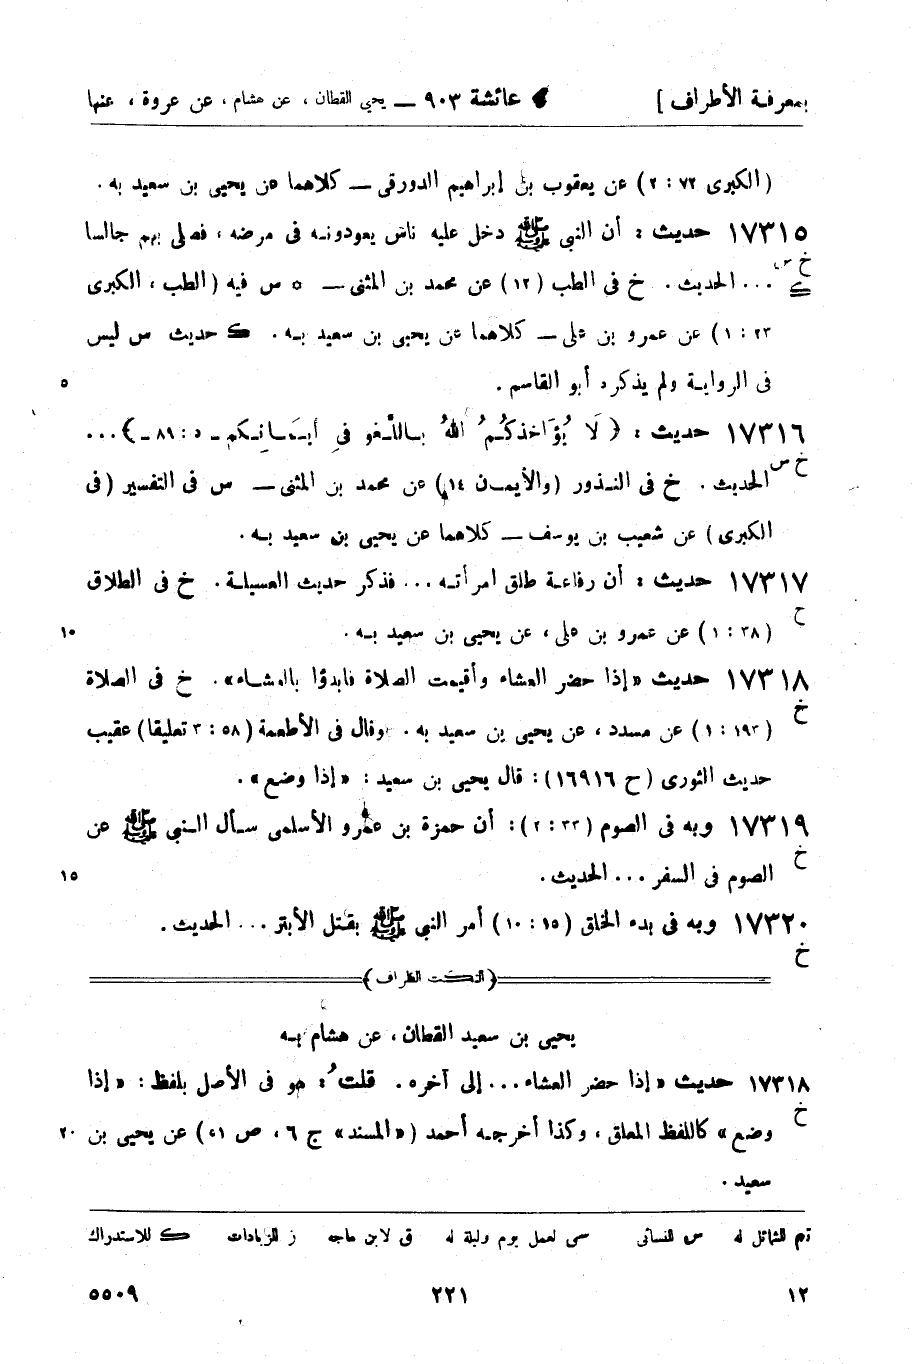 بمعرفة الأطراف ] عائشة ٩٠٣ — يحيى القطان ، عن هشام ، عن عروة ، عنها
( الكبرى ٧٢ : ٢ ) عن يعقوب بن إبراهيم الدورقى — كلاهما عن يحيى بن سعيد به .
١٧٣١٥ حديث : أن النبي ﷺ دخل عليه ناس يعودونه فى مرضه ، فصلى بهم جالسا
خ س
ك
... الحديث . خ فى الطب ( ١٢ ) عن محمد بن المثنى — * س فيه ( الطب ، الكبرى
٢٣ : ١ ) عن عمرو بن على — كلاهما عن يحيى بن سعيد به . ك حديث س ليس
فى الرواية ولم يذكره أبو القاسم .
٥
١٧٣١٦ حديث : ﴿ لَا يُؤَاخِذُكُمُ اللهُ بِاللَّغوِ فِي أَيمَانِكم ـ ٥ : ٨٩ ـ ﴾ ...
خ س
الحديث . خ فى النذور ( والأيمان ١٤ ) عن محمد بن المثنى — س فى التفسير ( فى
الكبرى ) عن شعيب بن يوسف — كلاهما عن يحيى بن سعيد به .
١٧٣١٧ حديث : أن رفاعة طلق امرأته ... فذكر حديث العسيلة . خ فى الطلاق
خ
( ٣٨ : ١ ) عن عمرو بن على ، عن يحيى بن سعيد به .
١٠
١٧٣١٨ حديث « إذا حضر العشاء وأقيمت الصلاة فابدؤا بالعشاء » . خ فى الصلاة
خ
( ١٩٣ : ١ ) عن مسدد ، عن يحيى بن سعيد به . وقال فى الأطعمة ( ٥٨ : ٣ تعليقا ) عقيب
حديث الثورى ( ح ١٦٩١٦ ) : قال يحيى بن سعيد : « إذا وضع » .
١٧٣١٩ وبه فى الصوم ( ٣٣ : ٢ ) : أن حمزة بن عمرو الأسلمى سأل النبي ﷺ عن
خ
الصوم فى السفر ... الحديث .
١٥
١٧٣٢٠ وبه فى بدء الخلق ( ١٥ : ١٠ ) أمر النبي ﷺ بقتل الأبتر ... الحديث .
خ
( النكت الظراف )
يحيى بن سعيد القطان ، عن هشام به
١٧٣١٨ حديث « إذا حضر العشاء ... إلى آخره . قلت : هو فى الأصل بلفظ : « إذا
خ
وضع » كاللفظ المعلق ، وكذا أخرجه أحمد ( « المسند » ج ٦ ، ص ٥١ ) عن يحيى بن
٢٠
سعيد .
تم للشمائل له س للنسائى سى لعمل يوم وليلة له ق لابن ماجه ز للزيادات ك للاستدراك
١٢ ٢٢١ ٥٥٠٩